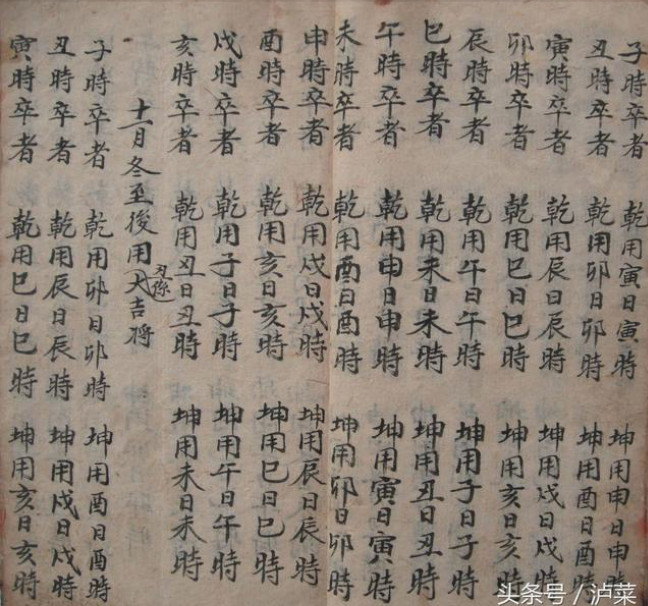 子時卒者 乾用寅日寅時 坤用申日申時
丑時卒者 乾用卯日卯時 坤用酉日酉時
寅時卒者 乾用辰日辰時 坤用戌日戌時
卯時卒者 乾用巳日巳時 坤用亥日亥時
辰時卒者 乾用午日午時 坤用子日子時
巳時卒者 乾用未日未時 坤用丑日丑時
午時卒者 乾用申日申時 坤用寅日寅時
未時卒者 乾用酉日酉時 坤用卯日卯時
申時卒者 乾用戌日戌時 坤用辰日辰時
酉時卒者 乾用亥日亥時 坤用巳日巳時
戌時卒者 乾用子日子時 坤用午日午時
亥時卒者 乾用丑日丑時 坤用未日未時
十一月冬至後用大吉將
子時卒者 乾用卯日卯時 坤用酉日酉時
丑時卒者 乾用辰日辰時 坤用戌日戌時
寅時卒者 乾用巳日巳時 坤用亥日亥時
头条号 / 泸菜